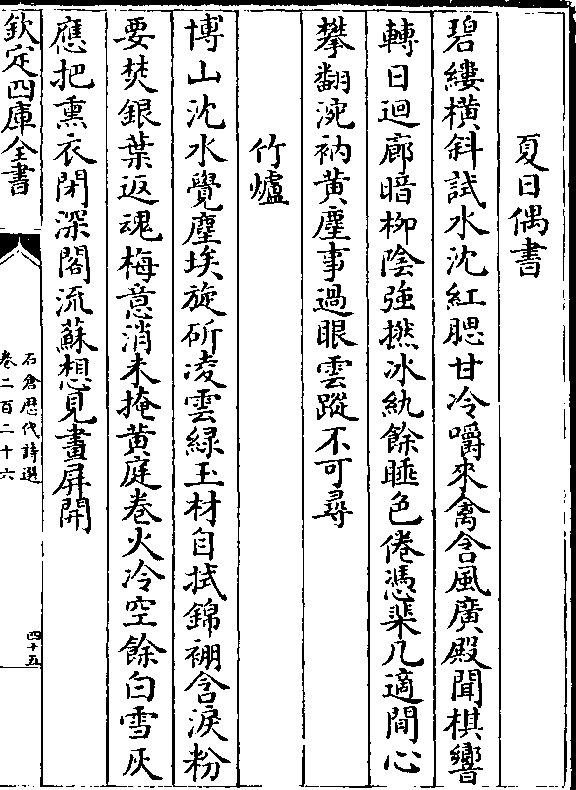 夏日偶書
碧縷橫斜試水沈紅腮甘冷嚼來禽含風廣殿聞棋響
轉日迴廊暗柳陰強撚冰紈餘睡色倦憑棐几適閒心
攀翻涴衲黃塵事過眼雲蹤不可尋
竹爐
博山沈水覺塵埃旋斫凌雲綠玉材自拭錦棚含淚粉
要焚銀葉返魂梅意消未掩黃庭卷火冷空餘白雪灰
應把熏衣閉深閣流蘇想見畫屏開
欽定四庫全書
石倉歷代詩選
卷二百二十六
四十五